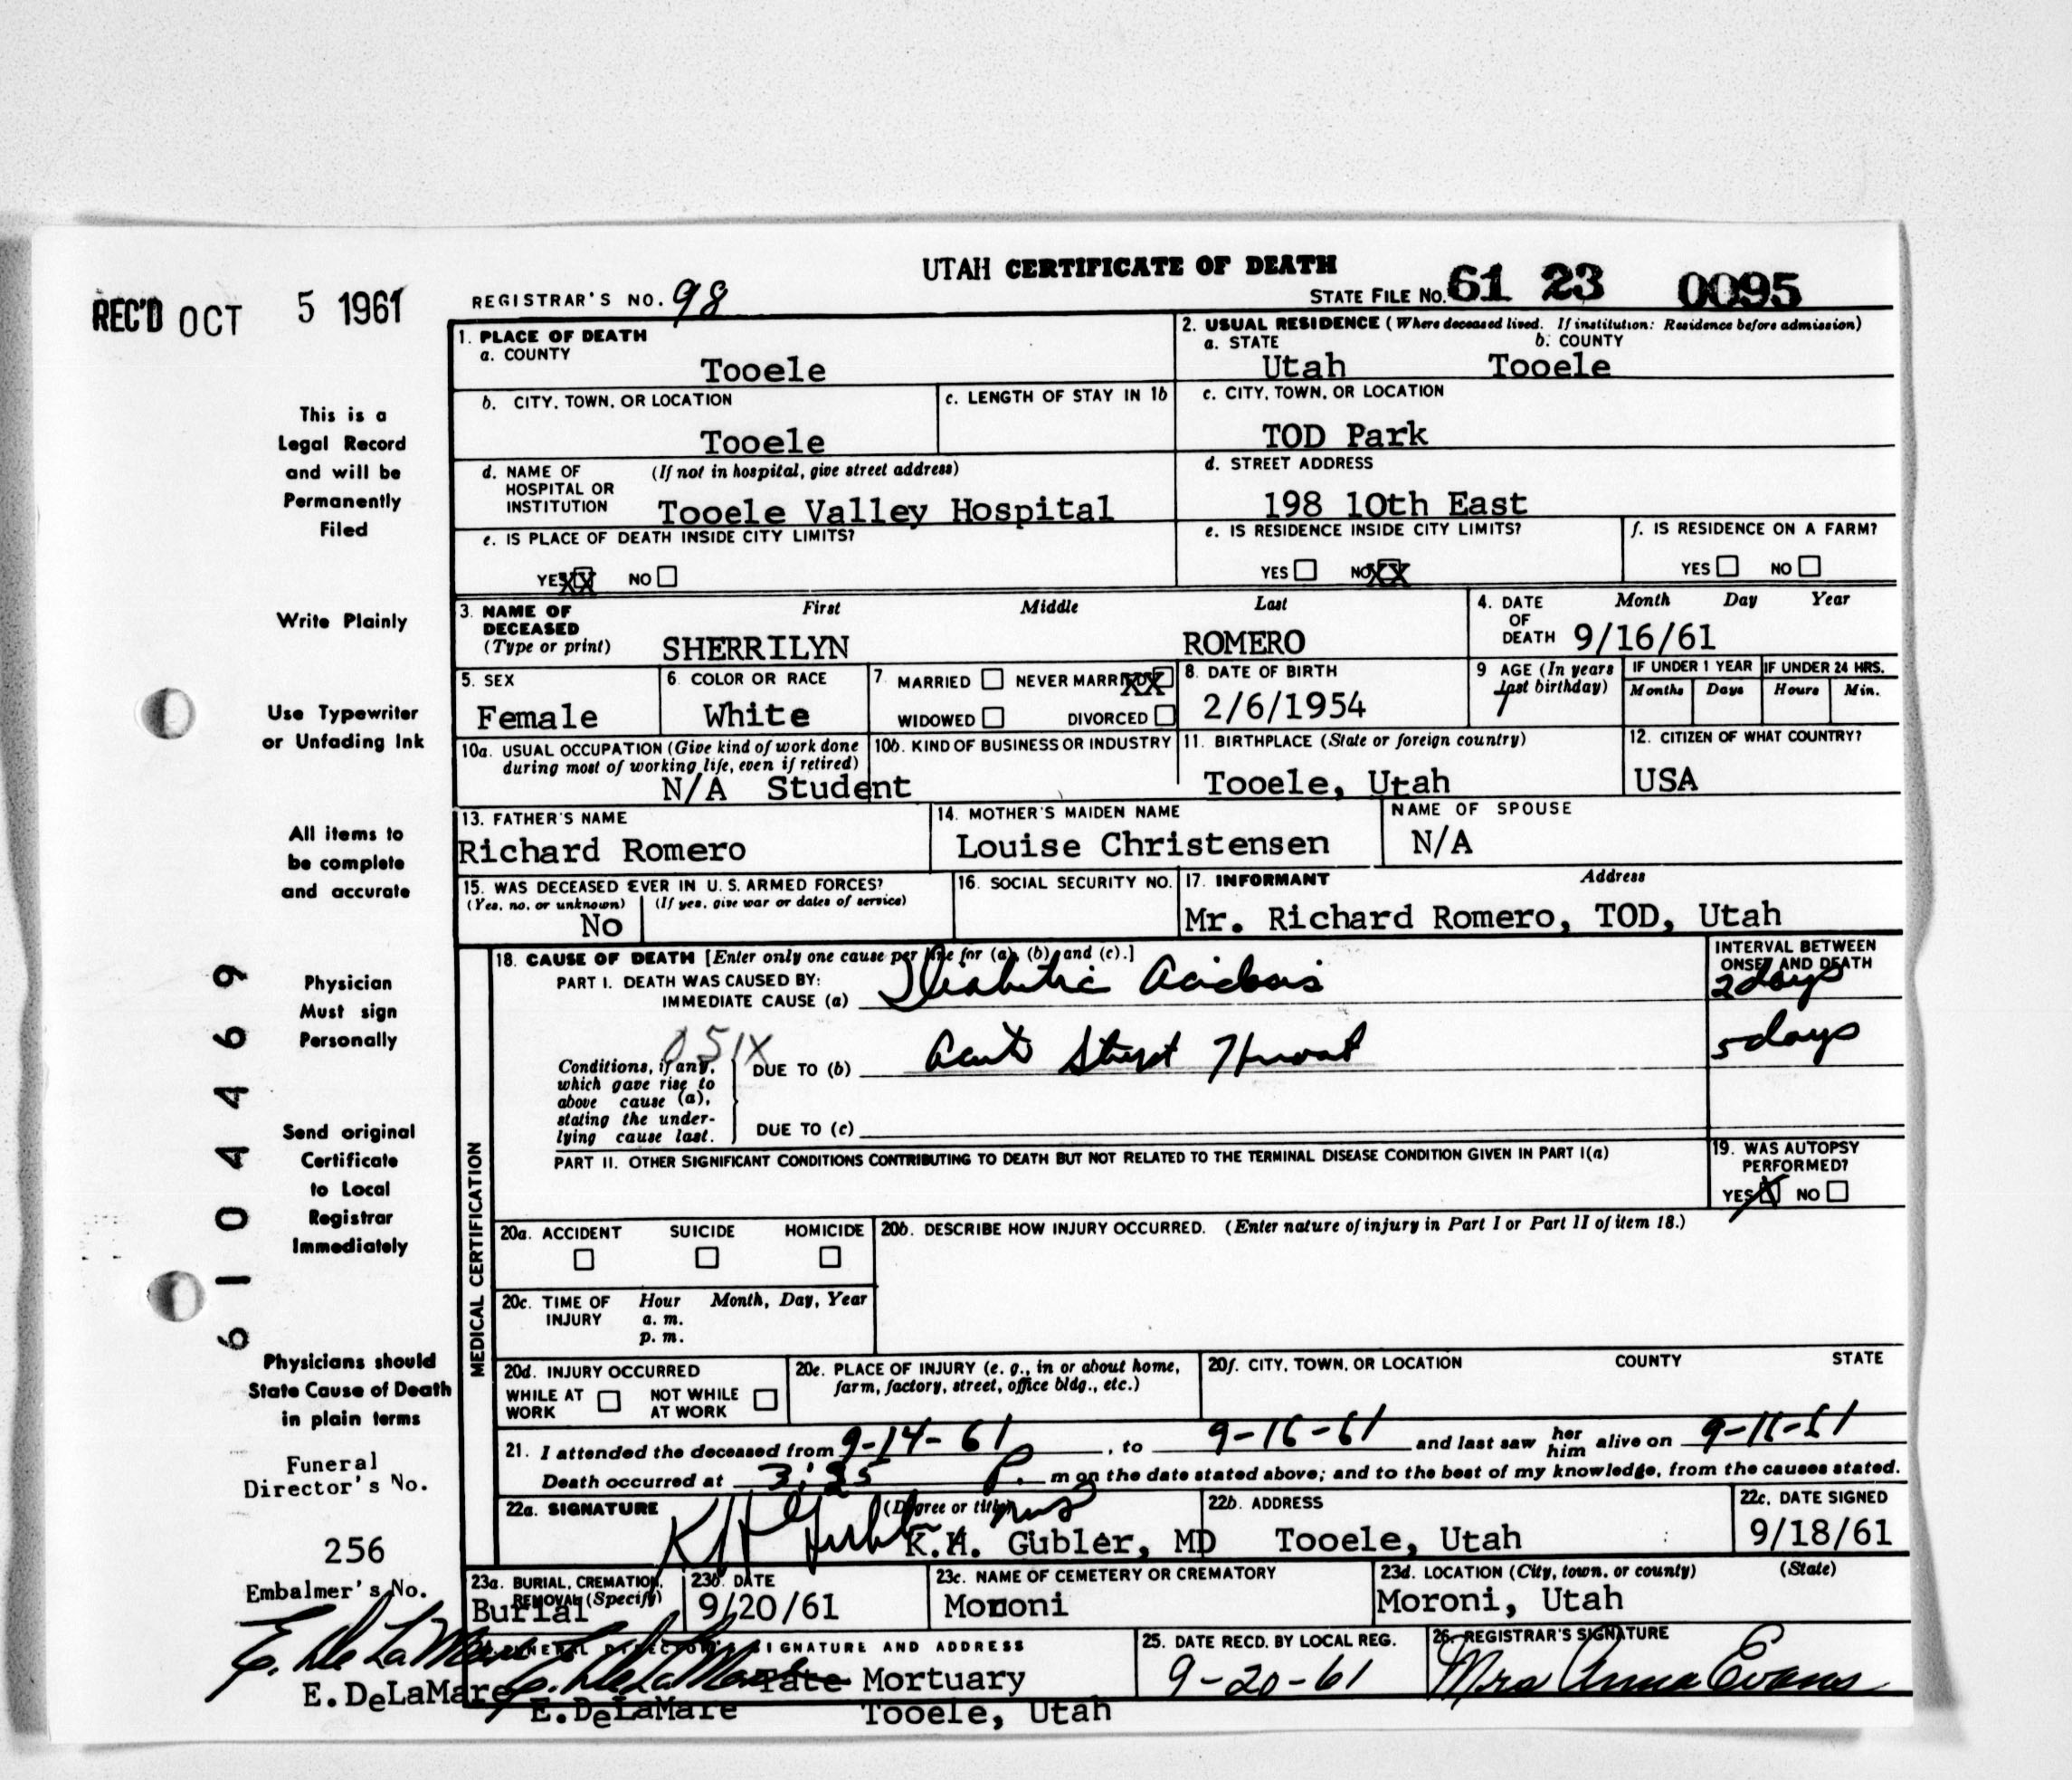 UTAH CERTIFICATE OF DEATH
REC'D OCT 5 1961
REGISTRAR'S NO. 98
STATE FILE NO. 61 23 0095
1. PLACE OF DEATH
a. COUNTY
Tooele
2. USUAL RESIDENCE (Where deceased lived. If institution: Residence before admission)
a. STATE b. COUNTY
Utah Tooele
b. CITY, TOWN, OR LOCATION
Tooele
c. LENGTH OF STAY IN 1b
c. CITY, TOWN, OR LOCATION
TOD Park
d. NAME OF HOSPITAL OR INSTITUTION (If not in hospital, give street address)
Tooele Valley Hospital
d. STREET ADDRESS
198 10th East
e. IS PLACE OF DEATH INSIDE CITY LIMITS?
YES XX NO
e. IS RESIDENCE INSIDE CITY LIMITS?
YES NO XX
f. IS RESIDENCE ON A FARM?
YES NO
3. NAME OF DECEASED (Type or print)
First Middle Last
SHERRILYN ROMERO
4. DATE OF DEATH Month Day Year
9/16/61
5. SEX
Female
6. COLOR OR RACE
White
7. MARRIED NEVER MARRIED XX
WIDOWED DIVORCED
8. DATE OF BIRTH
2/6/1954
9 AGE (In years last birthday)
7
IF UNDER 1 YEAR IF UNDER 24 HRS.
Months Days Hours Min.
10a. USUAL OCCUPATION (Give kind of work done during most of working life, even if retired)
N/A Student
10b. KIND OF BUSINESS OR INDUSTRY
11. BIRTHPLACE (State or foreign country)
Tooele, Utah
12. CITIZEN OF WHAT COUNTRY?
USA
13. FATHER'S NAME
Richard Romero
14. MOTHER'S MAIDEN NAME
Louise Christensen
NAME OF SPOUSE
N/A
15. WAS DECEASED EVER IN U. S. ARMED FORCES?
(Yes, no, or unknown) (If yes, give war or dates of service)
No
16. SOCIAL SECURITY NO.
17. INFORMANT Address
Mr. Richard Romero, TOD, Utah
MEDICAL CERTIFICATION
18. CAUSE OF DEATH [Enter only one cause per line for (a), (b) and (c).]
INTERVAL BETWEEN ONSET AND DEATH
PART I. DEATH WAS CAUSED BY:
IMMEDIATE CAUSE (a) Diabetic Acidosis 2 days
051X
Conditions, if any, which gave rise to above cause (a), stating the underlying cause last.
DUE TO (b) Acute Strept Throat 5 days
DUE TO (c)
PART II. OTHER SIGNIFICANT CONDITIONS CONTRIBUTING TO DEATH BUT NOT RELATED TO THE TERMINAL DISEASE CONDITION GIVEN IN PART I(a)
19. WAS AUTOPSY PERFORMED?
YES X NO
20a. ACCIDENT SUICIDE HOMICIDE
20b. DESCRIBE HOW INJURY OCCURRED. (Enter nature of injury in Part I or Part II of item 18.)
20c. TIME OF INJURY Hour Month, Day, Year
a. m.
p. m.
20d. INJURY OCCURRED
WHILE AT WORK NOT WHILE AT WORK
20e. PLACE OF INJURY (e. g., in or about home, farm, factory, street, office bldg., etc.)
20f. CITY, TOWN, OR LOCATION COUNTY STATE
21. I attended the deceased from 9-14-61, to 9-16-61 and last saw her him alive on 9-16-61
Death occurred at 3:35 P. m on the date stated above; and to the best of my knowledge, from the causes stated.
22a. SIGNATURE (Degree or title)
K H Gubler MD
K.H. Gubler, MD
22b. ADDRESS
Tooele, Utah
22c. DATE SIGNED
9/18/61
23a. BURIAL, CREMATION, REMOVAL (Specify)
Burial
23b. DATE
9/20/61
23c. NAME OF CEMETERY OR CREMATORY
Moroni
23d. LOCATION (City, town, or county) (State)
Moroni, Utah
FUNERAL DIRECTOR'S SIGNATURE AND ADDRESS
E. DeLaMare Tate Mortuary
E.DeLaMare Tooele, Utah
25. DATE RECD. BY LOCAL REG.
9-20-61
26. REGISTRAR'S SIGNATURE
Mrs Anna Evans
This is a
Legal Record
and will be
Permanently
Filed
Write Plainly
Use Typewriter
or Unfading Ink
All items to
be complete
and accurate
Physician
Must sign
Personally
Send original
Certificate
to Local
Registrar
Immediately
Physicians should
State Cause of Death
in plain terms
Funeral
Director's No.
256
Embalmer's No.
E. DeLaMare
E.DeLaMare
6104469